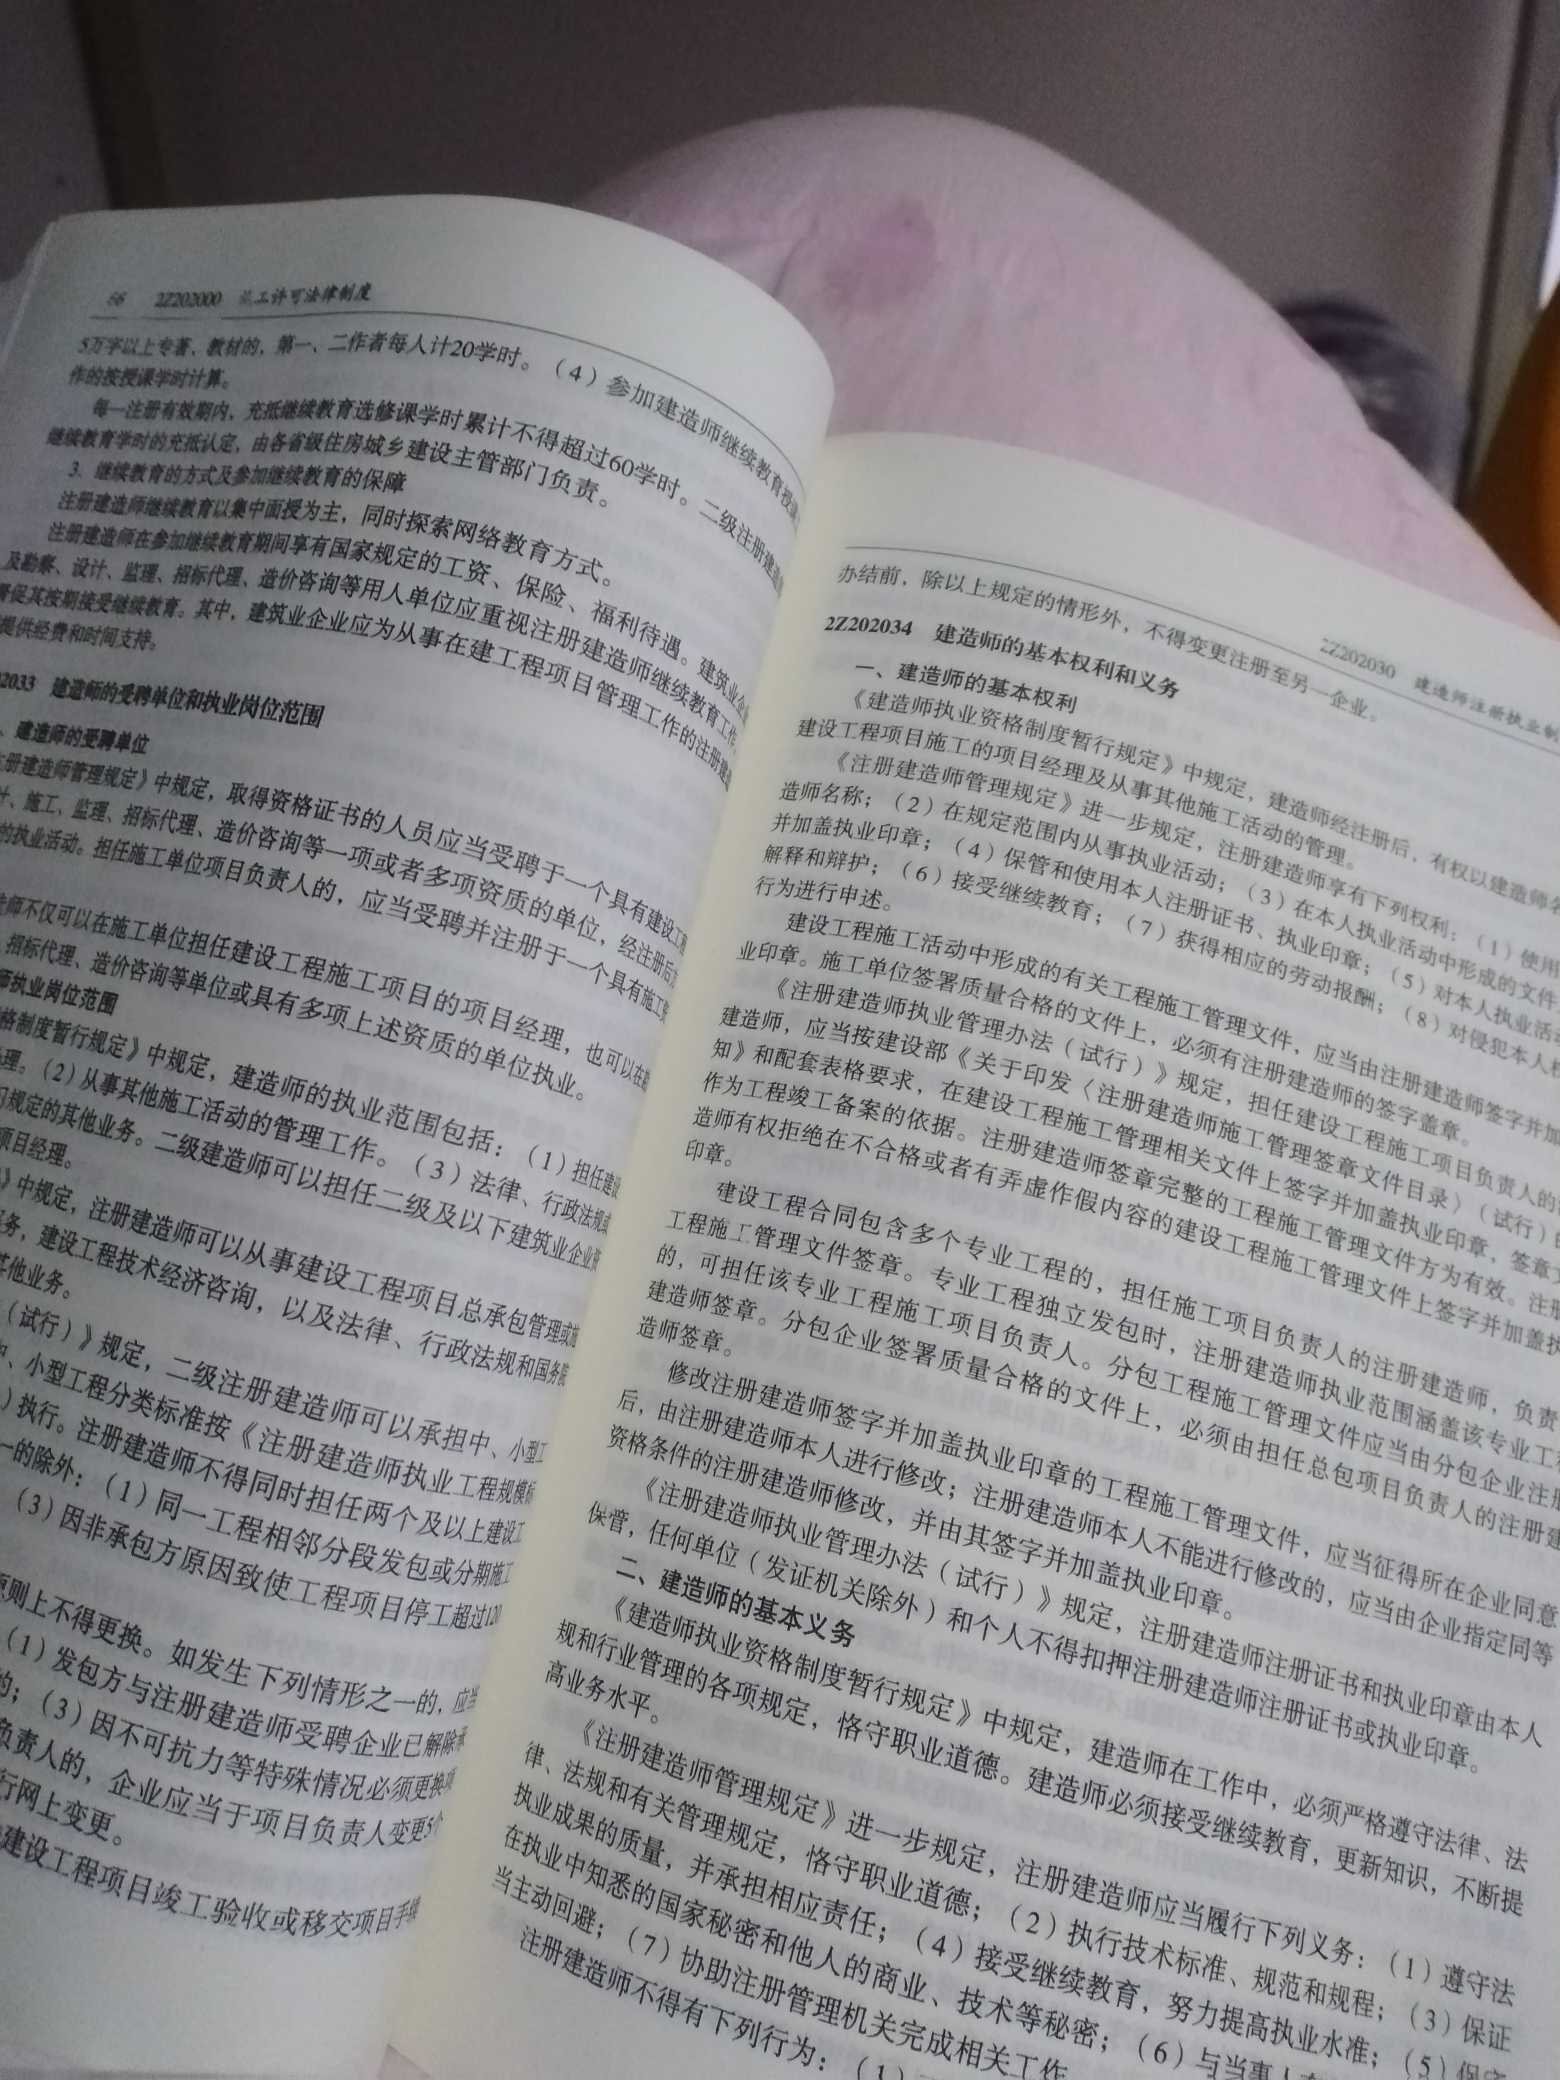 66 2Z202000 施工许可法律制度
5万字以上专著、教材的，第一、二作者每人计20学时。（4）参加建造师继续教育授课
作的按授课学时计算。
每一注册有效期内，充抵继续教育选修课学时累计不得超过60学时。二级注册建造师
继续教育学时的充抵认定，由各省级住房城乡建设主管部门负责。
3．继续教育的方式及参加继续教育的保障
注册建造师继续教育以集中面授为主，同时探索网络教育方式。
注册建造师在参加继续教育期间享有国家规定的工资、保险、福利待遇。建筑业企业
及勘察、设计、监理、招标代理、造价咨询等用人单位应重视注册建造师继续教育工作，
督促其按期接受继续教育。其中，建筑业企业应为从事在建工程项目管理工作的注册建造
提供经费和时间支持。
02033 建造师的受聘单位和执业岗位范围
、建造师的受聘单位
注册建造师管理规定》中规定，取得资格证书的人员应当受聘于一个具有建设工程
计、施工、监理、招标代理、造价咨询等一项或者多项资质的单位，经注册后方
的执业活动。担任施工单位项目负责人的，应当受聘并注册于一个具有施工资
造师不仅可以在施工单位担任建设工程施工项目的项目经理，也可以在勘
招标代理、造价咨询等单位或具有多项上述资质的单位执业。
师执业岗位范围
格制度暂行规定》中规定，建造师的执业范围包括：（1）担任建设
理。（2）从事其他施工活动的管理工作。（3）法律、行政法规或
门规定的其他业务。二级建造师可以担任二级及以下建筑业企业资
项目经理。
》中规定，注册建造师可以从事建设工程项目总承包管理或施
服务，建设工程技术经济咨询，以及法律、行政法规和国务院
其他业务。
（试行）》规定，二级注册建造师可以承担中、小型工
中、小型工程分类标准按《注册建造师执业工程规模标
）执行。注册建造师不得同时担任两个及以上建设工
一的除外：（1）同一工程相邻分段发包或分期施工
（3）因非承包方原因致使工程项目停工超过120
原则上不得更换。如发生下列情形之一的，应当
（1）发包方与注册建造师受聘企业已解除承
的；（3）因不可抗力等特殊情况必须更换项
负责人的，企业应当于项目负责人变更5个
行网上变更。
建设工程项目竣工验收或移交项目手续
2Z202030 建造师注册执业制
办结前，除以上规定的情形外，不得变更注册至另一企业。
2Z202034 建造师的基本权利和义务
一、建造师的基本权利
《建造师执业资格制度暂行规定》中规定，建造师经注册后，有权以建造师名
建设工程项目施工的项目经理及从事其他施工活动的管理。
《注册建造师管理规定》进一步规定，注册建造师享有下列权利：（1）使用
造师名称；（2）在规定范围内从事执业活动；（3）在本人执业活动中形成的文件
并加盖执业印章；（4）保管和使用本人注册证书、执业印章；（5）对本人执业活动
解释和辩护；（6）接受继续教育；（7）获得相应的劳动报酬；（8）对侵犯本人权
行为进行申述。
建设工程施工活动中形成的有关工程施工管理文件，应当由注册建造师签字并加
业印章。施工单位签署质量合格的文件上，必须有注册建造师的签字盖章。
《注册建造师执业管理办法（试行）》规定，担任建设工程施工项目负责人的
建造师，应当按建设部《关于印发〈注册建造师施工管理签章文件目录〉（试行）的
知》和配套表格要求，在建设工程施工管理相关文件上签字并加盖执业印章，签章文
作为工程竣工备案的依据。注册建造师签章完整的工程施工管理文件方为有效。注册
造师有权拒绝在不合格或者有弄虚作假内容的建设工程施工管理文件上签字并加盖执
印章。
建设工程合同包含多个专业工程的，担任施工项目负责人的注册建造师，负责
工程施工管理文件签章。专业工程独立发包时，注册建造师执业范围涵盖该专业工程
的，可担任该专业工程施工项目负责人。分包工程施工管理文件应当由分包企业注册
建造师签章。分包企业签署质量合格的文件上，必须由担任总包项目负责人的注册建
造师签章。
修改注册建造师签字并加盖执业印章的工程施工管理文件，应当征得所在企业同意
后，由注册建造师本人进行修改；注册建造师本人不能进行修改的，应当由企业指定同等
资格条件的注册建造师修改，并由其签字并加盖执业印章。
《注册建造师执业管理办法（试行）》规定，注册建造师注册证书和执业印章由本人
保管，任何单位（发证机关除外）和个人不得扣押注册建造师注册证书或执业印章。
二、建造师的基本义务
《建造师执业资格制度暂行规定》中规定，建造师在工作中，必须严格遵守法律、法
规和行业管理的各项规定，恪守职业道德。建造师必须接受继续教育，更新知识，不断提
高业务水平。
《注册建造师管理规定》进一步规定，注册建造师应当履行下列义务：（1）遵守法
律、法规和有关管理规定，恪守职业道德；（2）执行技术标准、规范和规程；（3）保证
执业成果的质量，并承担相应责任；（4）接受继续教育，努力提高执业水准；（5）保守
在执业中知悉的国家秘密和他人的商业、技术等秘密；（6）与当事人有
当主动回避；（7）协助注册管理机关完成相关工作
注册建造师不得有下列行为：（1）